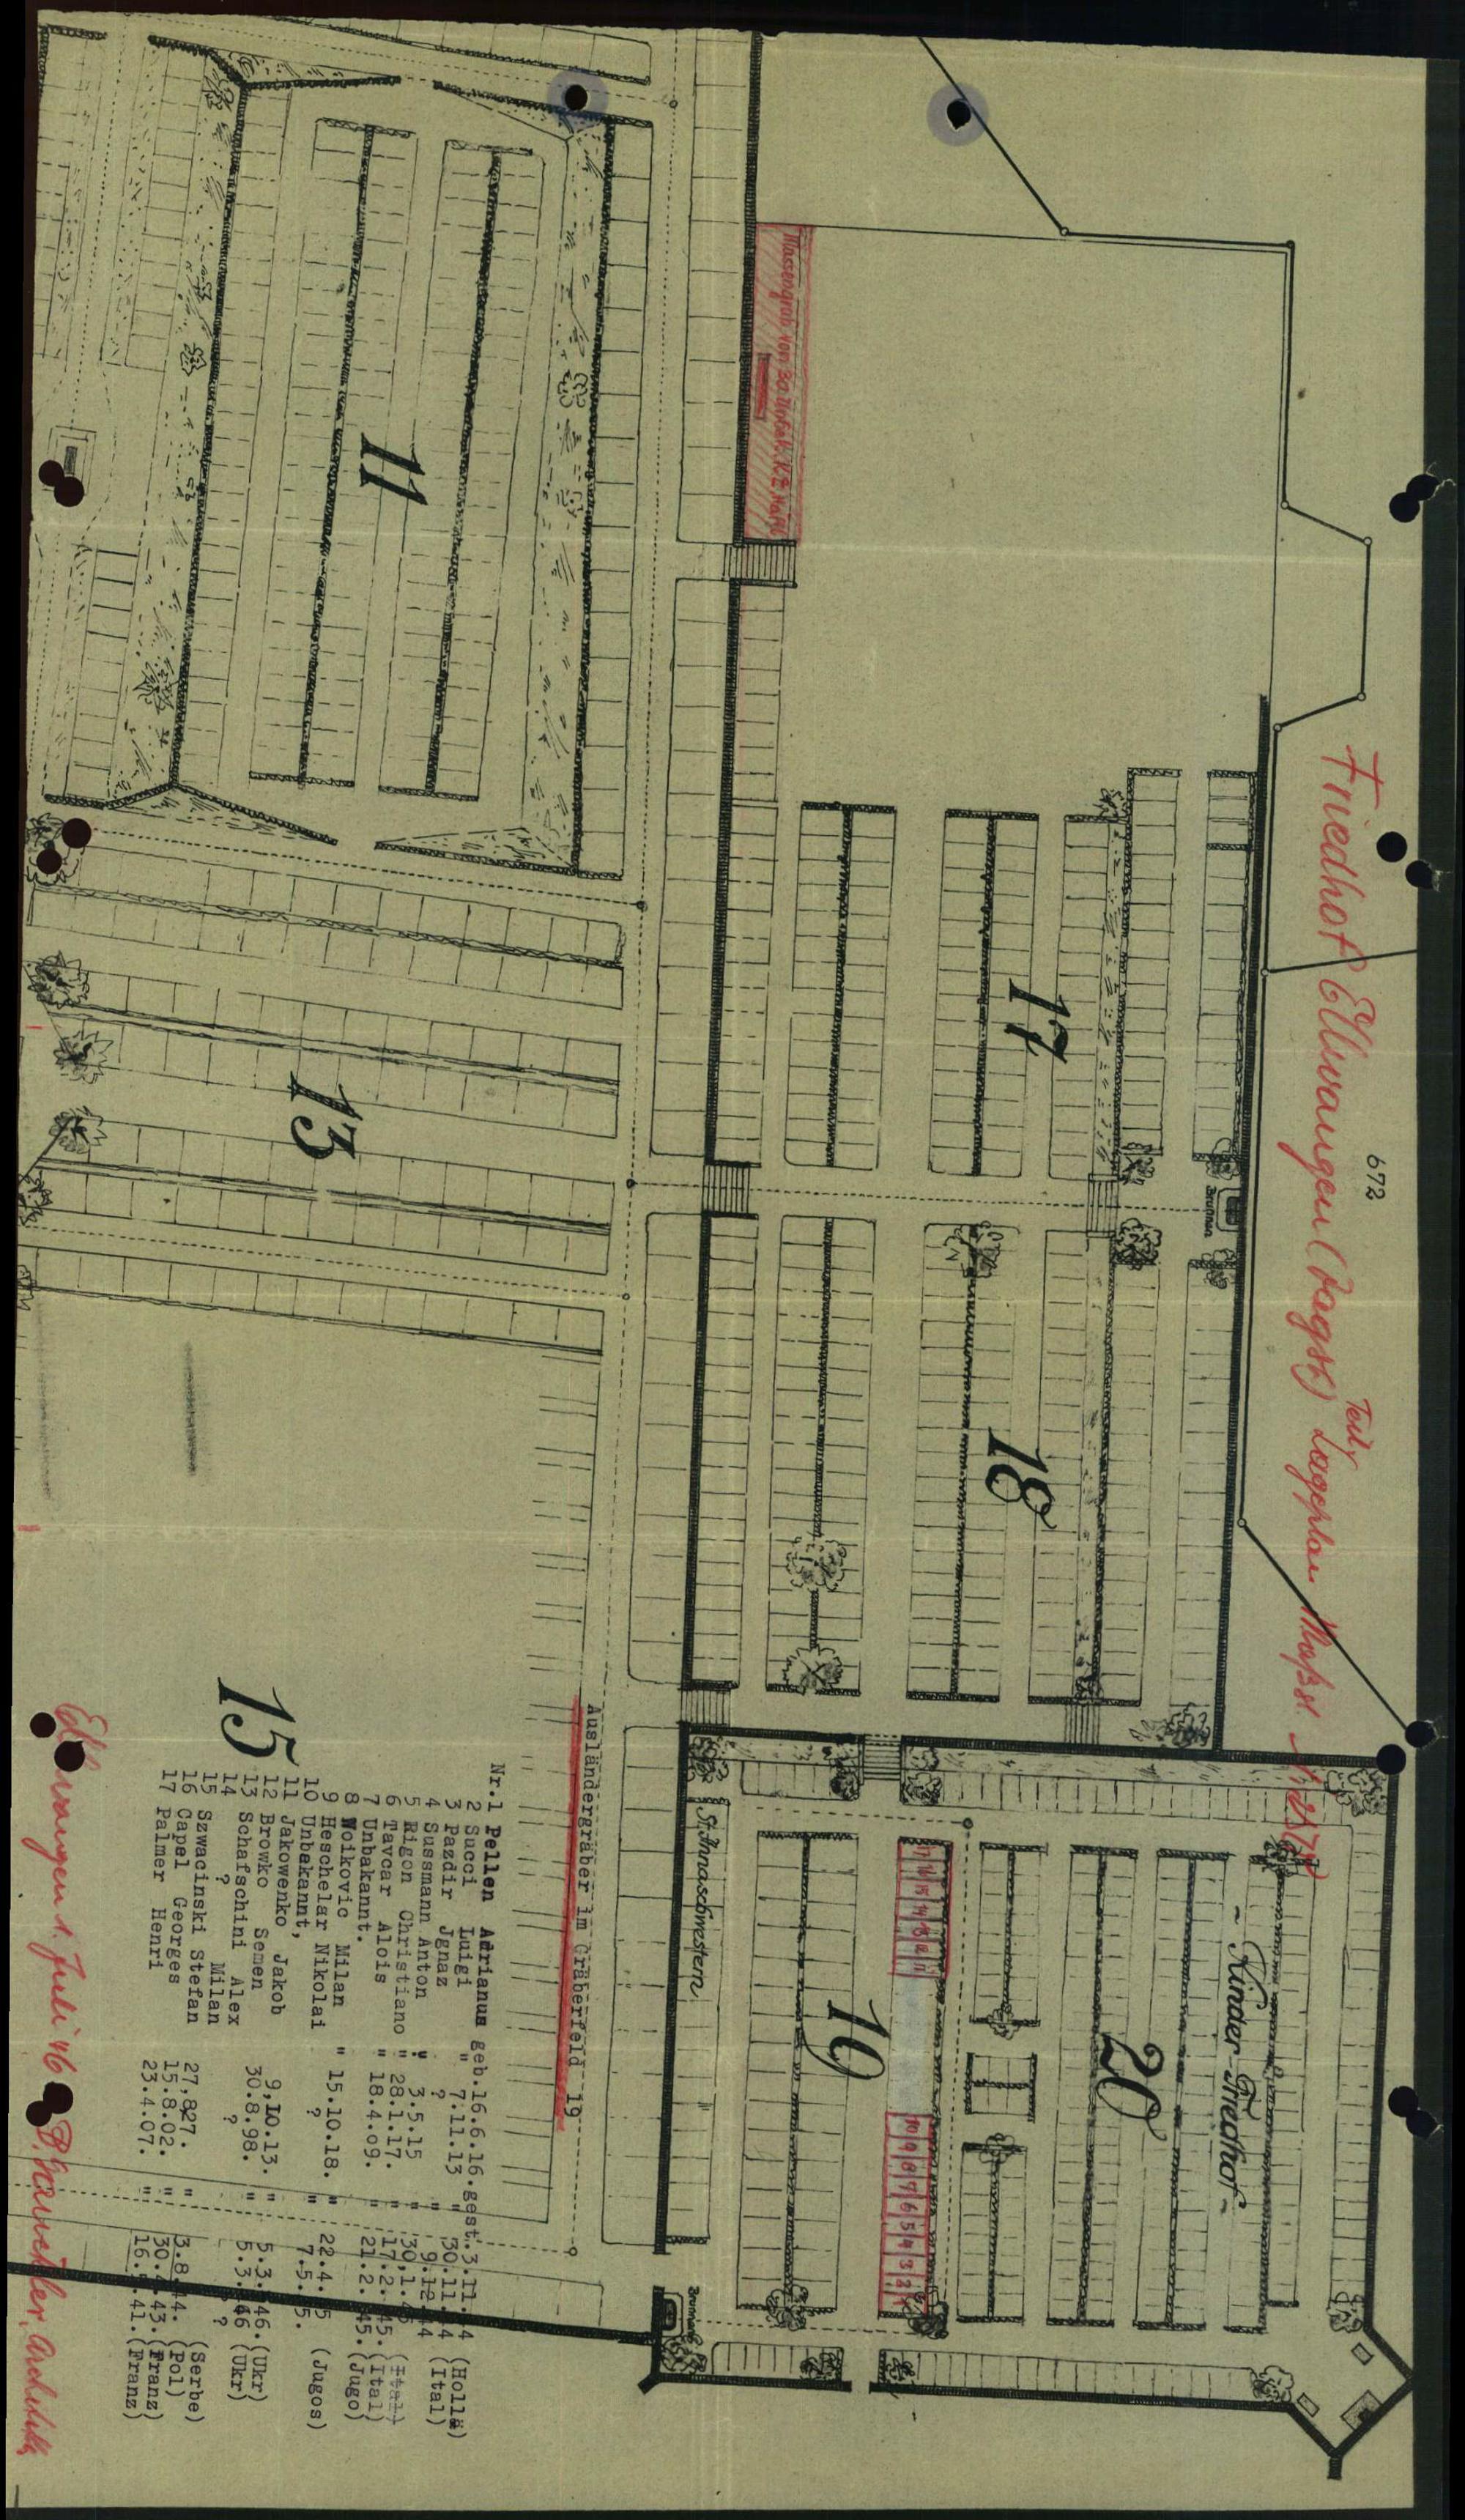 672
Friedhof Ellwangen (Jagst) Teil, Lageplan Maßst.
Massengrab von 30 Unbek. K.Z. Häftl.
11
17
13
18
Brunnen
15
St. Annaschwestern
19
20
- Kinder-Friedhof -
17 16 15 14 13 12 11
10 9 8 7 6 5 4 3 2 1
Brunnen
Ausländergräber im Gräberfeld 19
Nr.1 Pellen Adrianus geb.16.6.16.gest.3.11.44 (Hollä)
2 Succi Luigi " 7.11.13 " 30.11.44 (Ital)
3 Pazdir Jgnaz ? 9.12.44
4 Sussmann Anton " 3.5.15 " 30.1.45 (Ital)
5 Rigon Christiano " 28.1.17. " 17.2.45. (Ital)
6 Tavcar Alois " 18.4.09. " 21.2.45. (Jugo)
7 Unbakannt.
8 Woikovic Milan " 15.10.18. " 22.4.5 (Jugos)
9 Heschelar Nikolai ? " 7.5.5.
10 Unbekannt,
11 Jakowenko, Jakob 9,10.13. " 5.3.46. (Ukr)
12 Browko Semen 30.8.98. " 5.3.46 (Ukr)
13 Schafschini Alex ? ?
14 ? Milan (Serbe)
15 Szwacinski Stefan 27,827. " 3.8.44. (Pol)
16 Capel Georges 15.8.02. " 30.4.43. (Franz)
17 Palmer Henri 23.4.07. " 16.5.41. (Franz)
Ellwangen 1. Juli 46
Architekt